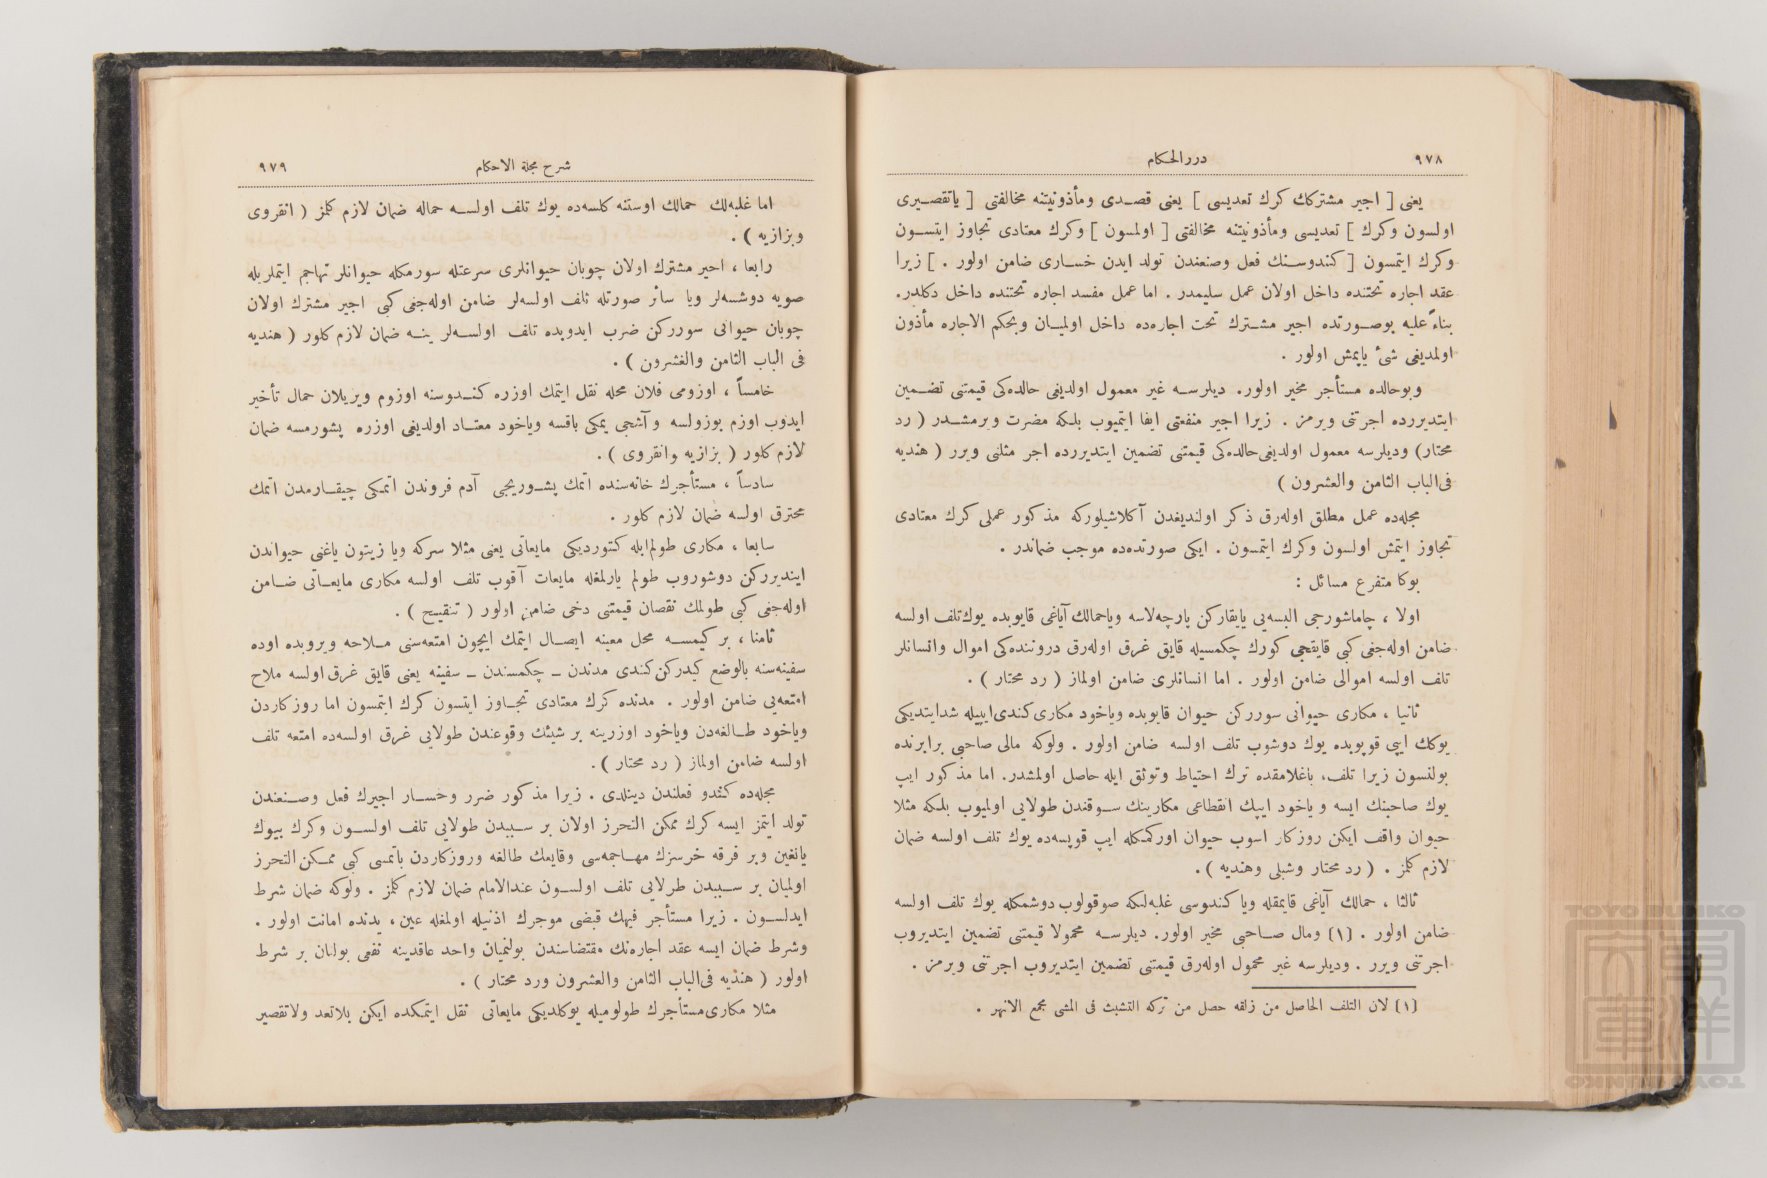 ٩٧٨
دررالحكام
يعنى [ اجير مشتركك كرك تعديسى ] يعنى قصدى ومأذونيتنه مخالفتى [ ياتقصيرى
اولسون وكرك ] تعديسى ومأذونيتنه مخالفتى [ اولمسون ] وكرك معتادى تجاوز ايتسون
وكرك ايتمسون [ كندوسنك فعل وصنعندن تولد ايدن خسارى ضامن اولور . ] زيرا
عقد اجاره تحتنده داخل اولان عمل سليمدر . اما عمل مفسد اجاره تحتنده داخل دكلدر.
بناءً عليه بوصورتده اجير مشترك تحت اجاره‌ده داخل اولميان وبحكم الاجاره مأذون
اولمديغى شئ ياپمش اولور .
وبوحالده مستأجر مخير اولور. ديلرسه غير معمول اولديغى حالده‌كى قيمتنى تضمين
ايتديررده اجرتنى ويرمز . زيرا اجير منفعتى ايفا ايتميوب بلكه مضرت ويرمشدر ( رد
محتار) وديلرسه معمول اولديغى‌حالده‌كى قيمتنى تضمين ايتديررده اجر مثلنى ويرر ( هنديه
فى‌الباب الثامن والعشرون )
مجله‌ده عمل مطلق اوله‌رق ذكر اولنديغندن آكلاشيلوركه مذكور عملى كرك معتادى
تجاوز ايتمش اولسون وكرك ايتمسون . ايكى صورتده‌ده موجب ضماندر .
بوكا متفرع مسائل :
اولا ، چاماشورجى البسه‌يى يايقاركن پارچه‌لاسه وياحمالك آياغى قايوبده يوك‌تلف اولسه
ضامن اوله‌جغى كبى قايقجى كورك چكمسيله قايق غرق اوله‌رق دروننده‌كى اموال وانسانلر
تلف اولسه اموالى ضامن اولور . اما انسانلرى ضامن اولماز ( رد محتار ) .
ثانيا ، مكارى حيوانى سوررکن حيوان قايوبده وياخود مكارى‌كندى‌ايپيله شدايتديكى
يوكك ايپى قوپوبده يوك دوشوب تلف اولسه ضامن اولور . ولوكه مالى صاحبى برابرنده
بولنسون زيرا تلف، باغلامقده ترك احتياط وتوثق ايله حاصل اولمشدر. اما مذكور ايپ
يوك صاحبنك ايسه و ياخود ايپك انقطاعى مكارينك سوقندن طولايى اولميوب بلكه مثلا
حيوان واقف ايكن روزكار اسوب حيوان اوركمكله ايپ قوپسه‌ده يوك تلف اولسه ضمان
لازم كلمز . ( رد محتار وشبلى وهنديه ) .
ثالثا ، حمالك آياغى قايمقله ويا كندوسى غلبه‌لكه صوقولوب دوشمكله يوك تلف اولسه
ضامن اولور . (١) ومال صاحبى مخير اولور. ديلرسه محمولا قيمتنى تضمين ايتديروب
اجرتنى ويرر . وديلرسه غير محمول اوله‌رق قيمتنى تضمين ايتديروب اجرتنى ويرمز .
(١) لان التلف الحاصل من زلقه حصل من تركه التشبث فى المشى مجمع الانهر .
شرح مجلة الاحكام
٩٧٩
اما غلبه‌لك حمالك اوستنه كلسه‌ده يوك تلف اولسه حماله ضمان لازم كلمز ( انقروى
وبزازيه ) .
رابعا ، اجير مشترك اولان چوبان حيوانلرى سرعتله سورمكله حيوانلر تهاجم ايتملريله
صويه دوشسه‌لر ويا سائر صورتله تلف اولسه‌لر ضامن اوله‌جغى كبى اجير مشترك اولان
چوبان حيوانى سوررکن ضرب ايدوبده تلف اولسه‌لر ينه ضمان لازم كلور ( هنديه
فى الباب الثامن والعشرون ) .
خامساً ، اوزومى فلان محله نقل ايتمك اوزره كندوسنه اوزوم ويريلان حمال تأخير
ايدوب اوزم بوزولسه و آشجى يمكى ياقسه وياخود معتاد اولديغى اوزره پشورمسه ضمان
لازم كلور ( بزازيه وانقروى ) .
سادساً ، مستأجرك خانه‌سنده اتمك پشوريجى آدم فروندن اتمكى چيقارمدن اتمك
محترق اولسه ضمان لازم كلور .
سابعا ، مكارى طولم‌ايله كتورديكى مايعاتى يعنى مثلا سركه ويا زيتون ياغنى حيواندن
اينديرركن دوشوروب طولم يارلمغله مايعات آقوب تلف اولسه مكارى مايعاتى ضامن
اوله‌جغى كبى طولمك نقصان قيمتنى دخى ضامن اولور ( تنقيح ) .
ثامنا ، بر كيمسه محل معينه ايصال ايتمك ايچون امتعه‌سنى ملاحه ويروبده اوده
سفينه‌سنه بالوضع كيدركن‌كندى مدندن ـ چكمسندن ـ سفينه يعنى قايق غرق اولسه ملاح
امتعه‌يى ضامن اولور . مدنده كرك معتادى تجاوز ايتسون كرك ايتمسون اما روزكاردن
وياخود طالغه‌دن وياخود اوزرينه بر شيئك وقوعندن طولايى غرق اولسه‌ده امتعه تلف
اولسه ضامن اولماز ( رد محتار ) .
مجله‌ده كندو فعلندن دينلدى . زيرا مذكور ضرر وخسار اجيرك فعل وصنعندن
تولد ايتمز ايسه كرك ممكن التحرز اولان بر سببدن طولايى تلف اولسون وكرك بيوك
يانغين وبر فرقه خرسزك مهاجمه‌سى وقايغك طالغه وروزكاردن باتمسى كبى ممكن التحرز
اولميان بر سببدن طولايى تلف اولسون عندالامام ضمان لازم كلمز . ولوكه ضمان شرط
ايدلسون . زيرا مستأجر فيهك قبضى موجرك اذنيله اولمغله عين، يدنده امانت اولور .
وشرط ضمان ايسه عقد اجاره‌نك مقتضاسندن بولنميان واحد عاقدينه نفعى بولنان بر شرط
اولور ( هنديه فى‌الباب الثامن والعشرون ورد محتار ) .
مثلا مكارى‌مستأجرك طولوميله يوكلديكى مايعاتى نقل ايتمكده ايكن بلاتعد ولاتقصير
TOYO BUNKO
東洋文庫
TOYO BUNKO